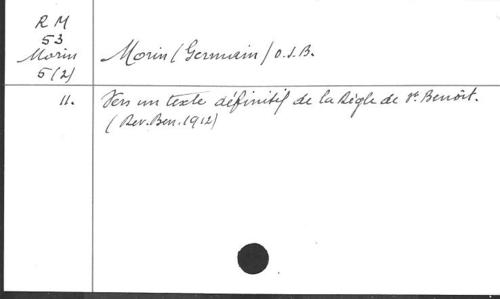 R M
53
Morin
5(2)
Morin (Germain) O.S.B.
11. Vers un texte définitif de la Règle de St. Benoît.
(Rev. Ben. 1912)